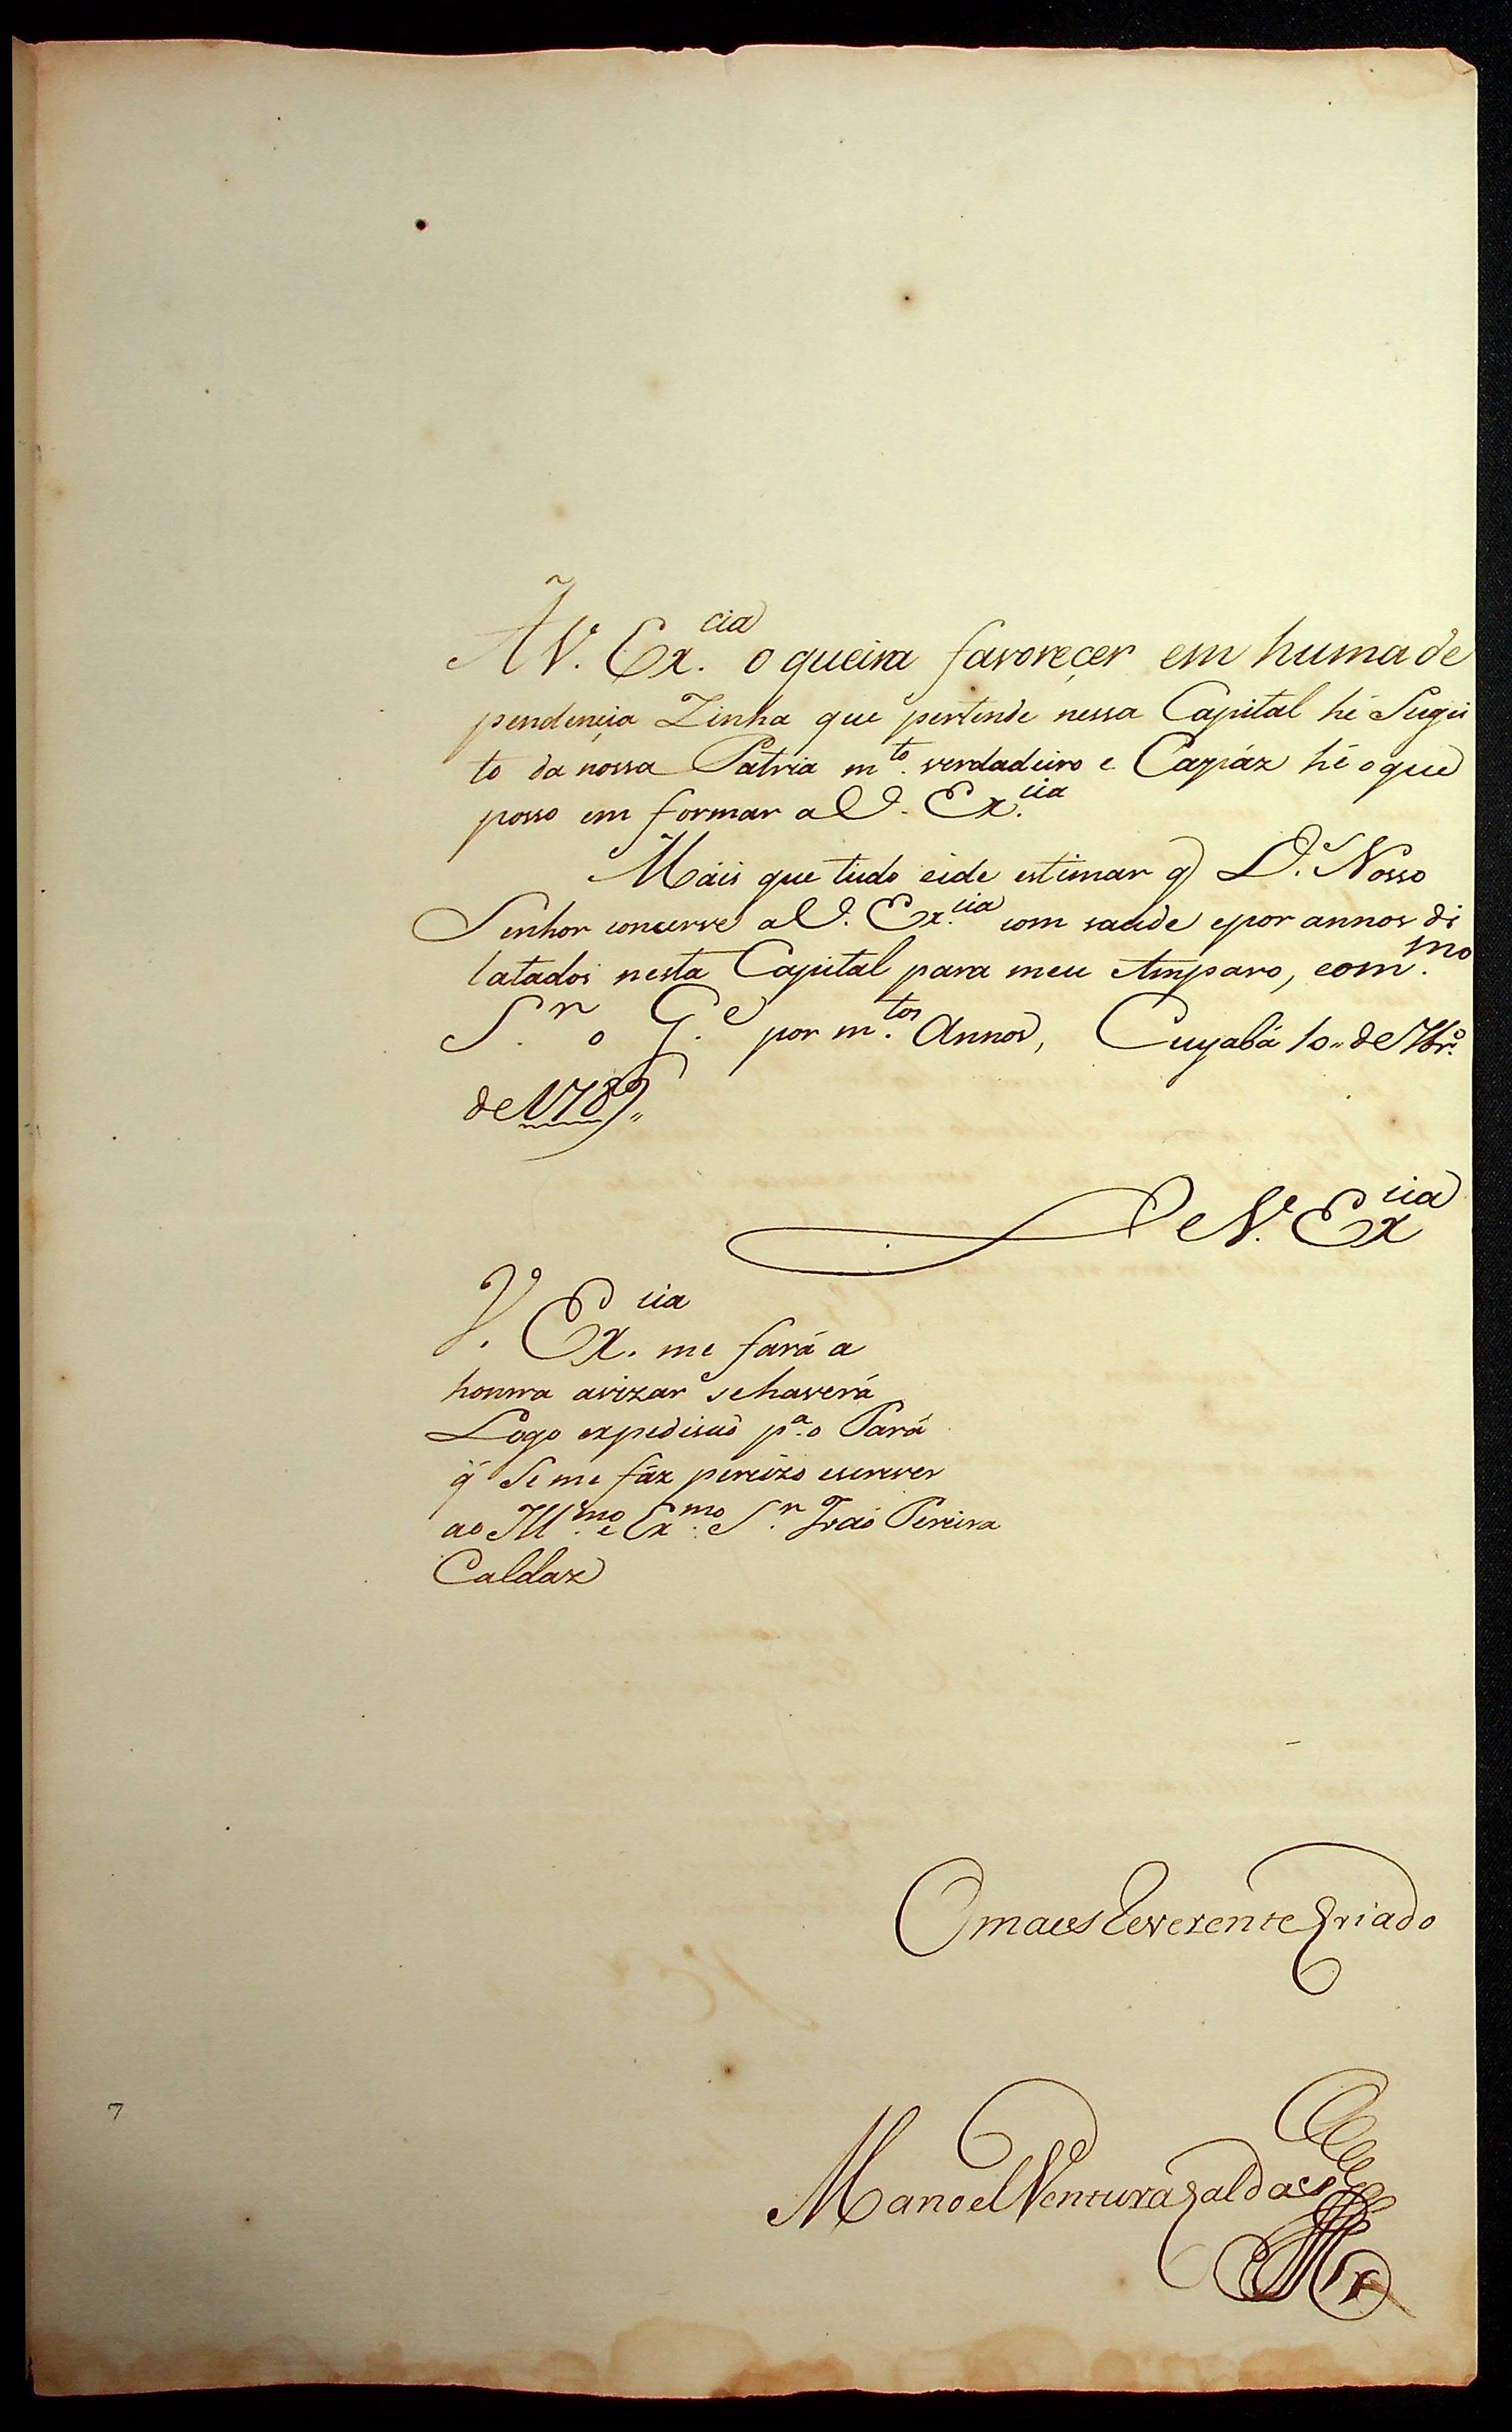 A V. Ex.cia o queira favoreçer em huma de
pendençia Zinha que pertende nessa Capital hé Sugei
to da nossa Patria m.to verdadeiro e Capáz hé o que
posso em formar a V. Ex.cia
Máis que tudo eide estimar q D.s Nosso
Senhor concerve a V. Ex.cia com saude e por annos di
latados nesta Capital para meu Amparo, eo m.mo
S.r o G.e por m.tos Annos, Cuyabá 10,, de 7br.o
de 1789,,
De V. Ex.cia
V. Ex.cia me fará a
honrra avizar se haverá
Logo expedisaõ p.a o Pará
q̃ Se me fáz percizo escrever
ao Ill.mo e Ex.mo S.r Joaõ Pereira
Caldaz
O maes Reverente Criado
Manoel Ventura Caldas
7